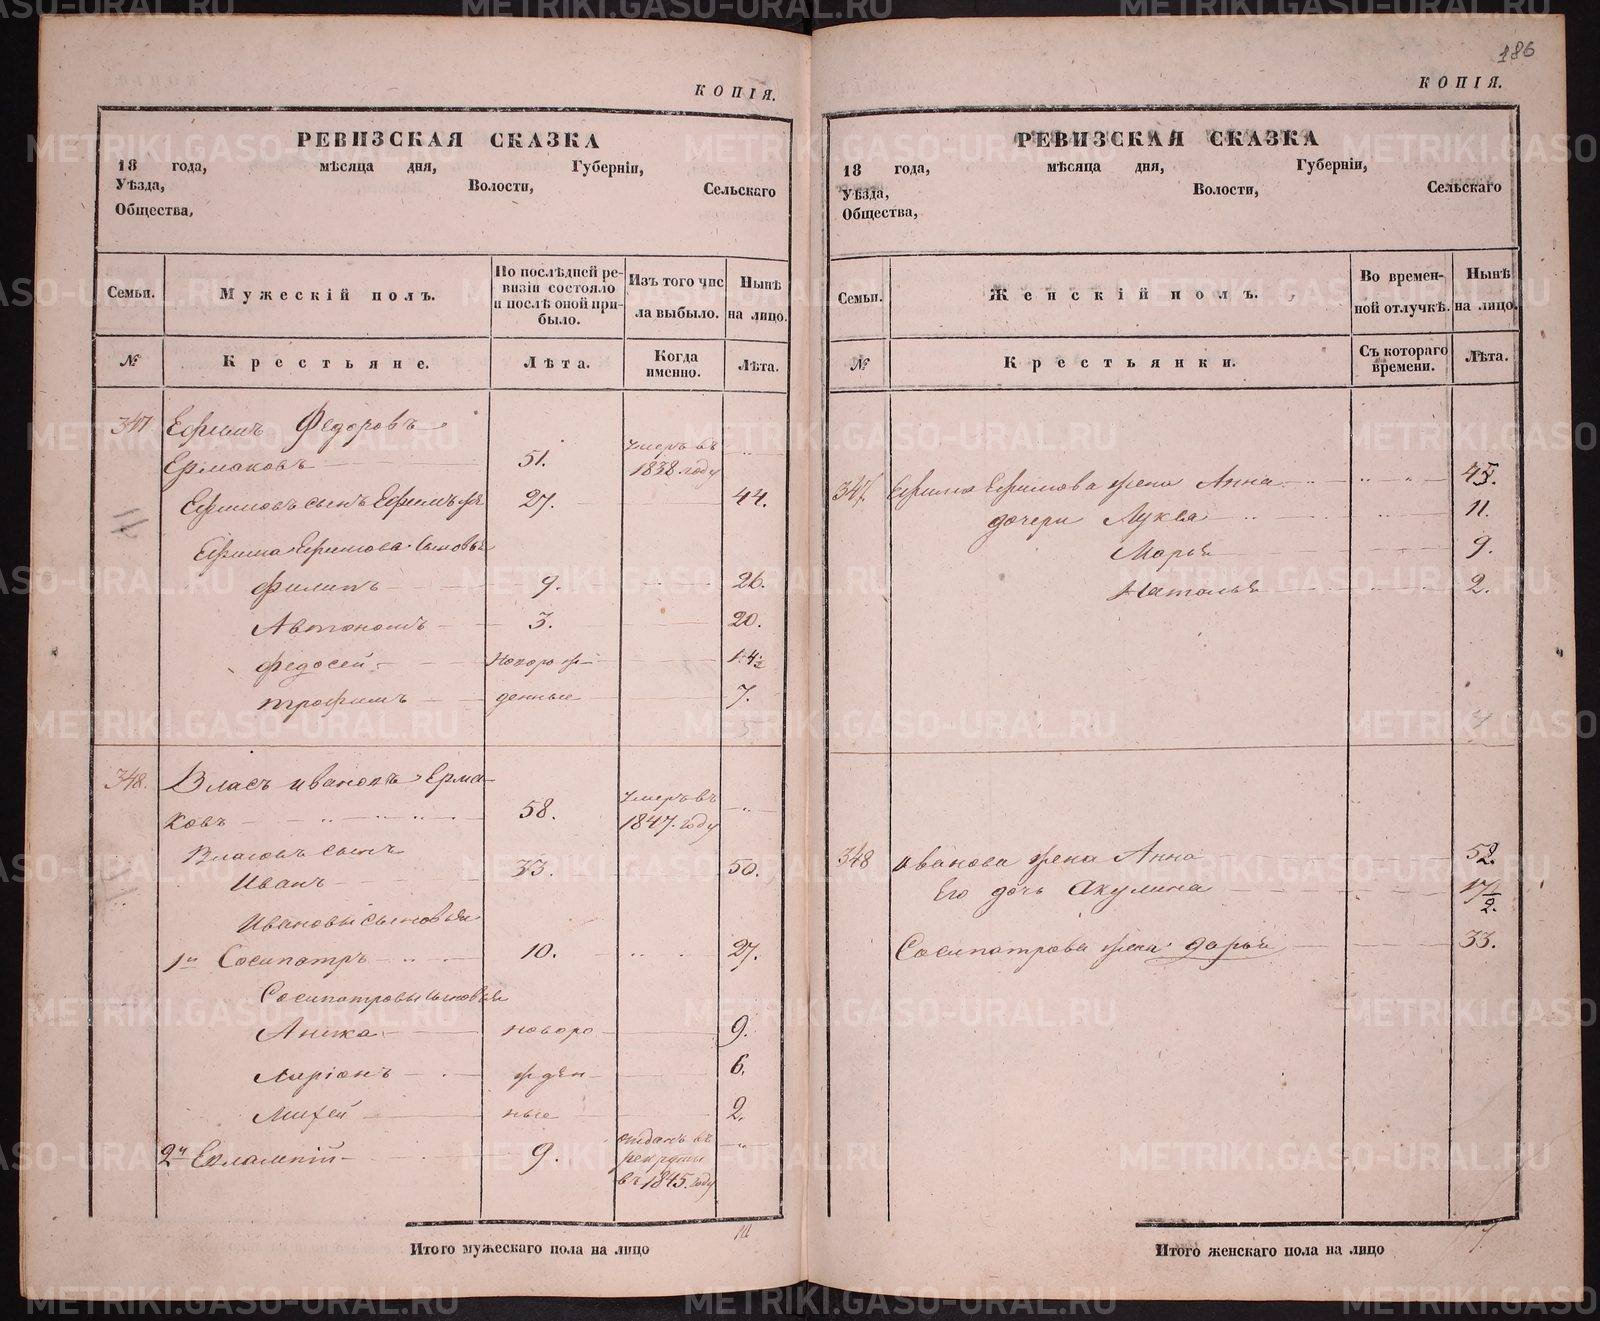 186
КОПІЯ.
РЕВИЗСКАЯ СКАЗКА
18 года, мѣсяца дня, Губерніи,
Уѣзда, Волости, Сельскаго
Общества,
Семьи. Мужескій полъ. По послѣдней ревизіи состояло и послѣ оной прибыло. Изъ того числа выбыло. Нынѣ на лицо.
№ Крестьяне. Лѣта. Когда именно. Лѣта.
347 Ефимъ Федоровъ
Ермаковъ 51. Умеръ въ 1838 году
Ефимовъ сынъ Ефимъ 27. 44.
Ефима Ефимова сыновья
Филипъ 9. 26.
Автономъ 3. 20.
Федосей Новорож- 14½
Трофимъ денные 7.
5
348. Власъ Ивановъ Ерма-
ковъ 58. Умеръ въ 1847. году
Власовъ сынъ
Иванъ 33. 50.
Ивановы сыновья
1й Сосипатръ 10. 27.
Сосипатровы сыновья
Аника новоро 9.
Ларіонъ жден 6.
Михей ные 2.
2й Евлампій 9. отданъ въ рекруты въ 1845. году
Итого мужескаго пола на лицо
КОПІЯ.
РЕВИЗСКАЯ СКАЗКА
18 года, мѣсяца дня, Губерніи,
Уѣзда, Волости, Сельскаго
Общества,
Семьи. Женскій полъ. Во временной отлучкѣ. Нынѣ на лицо.
№ Крестьянки. Съ котораго времени. Лѣта.
347. Ефима Ефимова жена Анна 45.
дочери Лукья 11.
Марья 9.
Наталья 2.
4
348 Иванова жена Анна 52
Его дочь Акулина 17½.
Сосипатрова жена Дарья 33.
Итого женскаго пола на лицо 7
METRIKI.GASO-URAL.RU